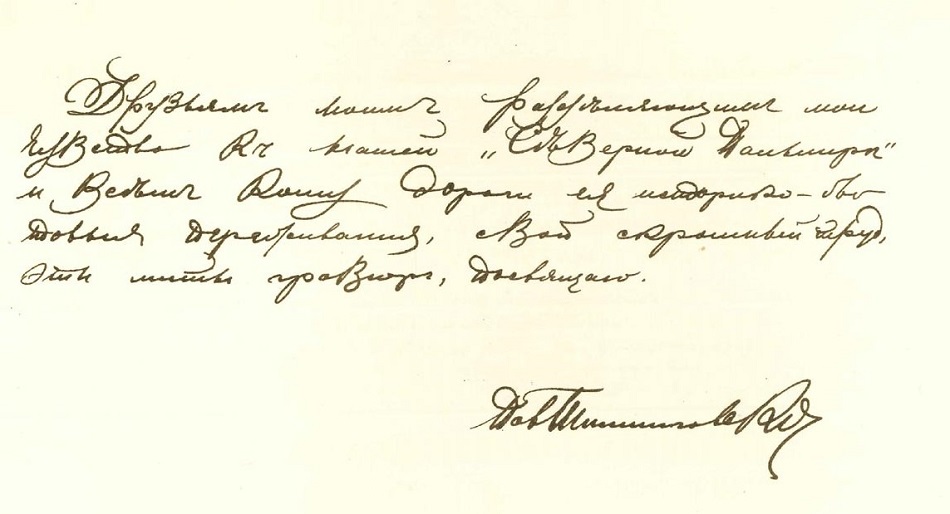 Друзьямъ моимъ, раздѣляющимъ мои
чувства къ нашей „Сѣверной Пальмирѣ“
и всѣмъ кому дороги ея историко-бы-
товыя переживания, свой скромный трудъ,
эти листы гравюръ, посвящаю.